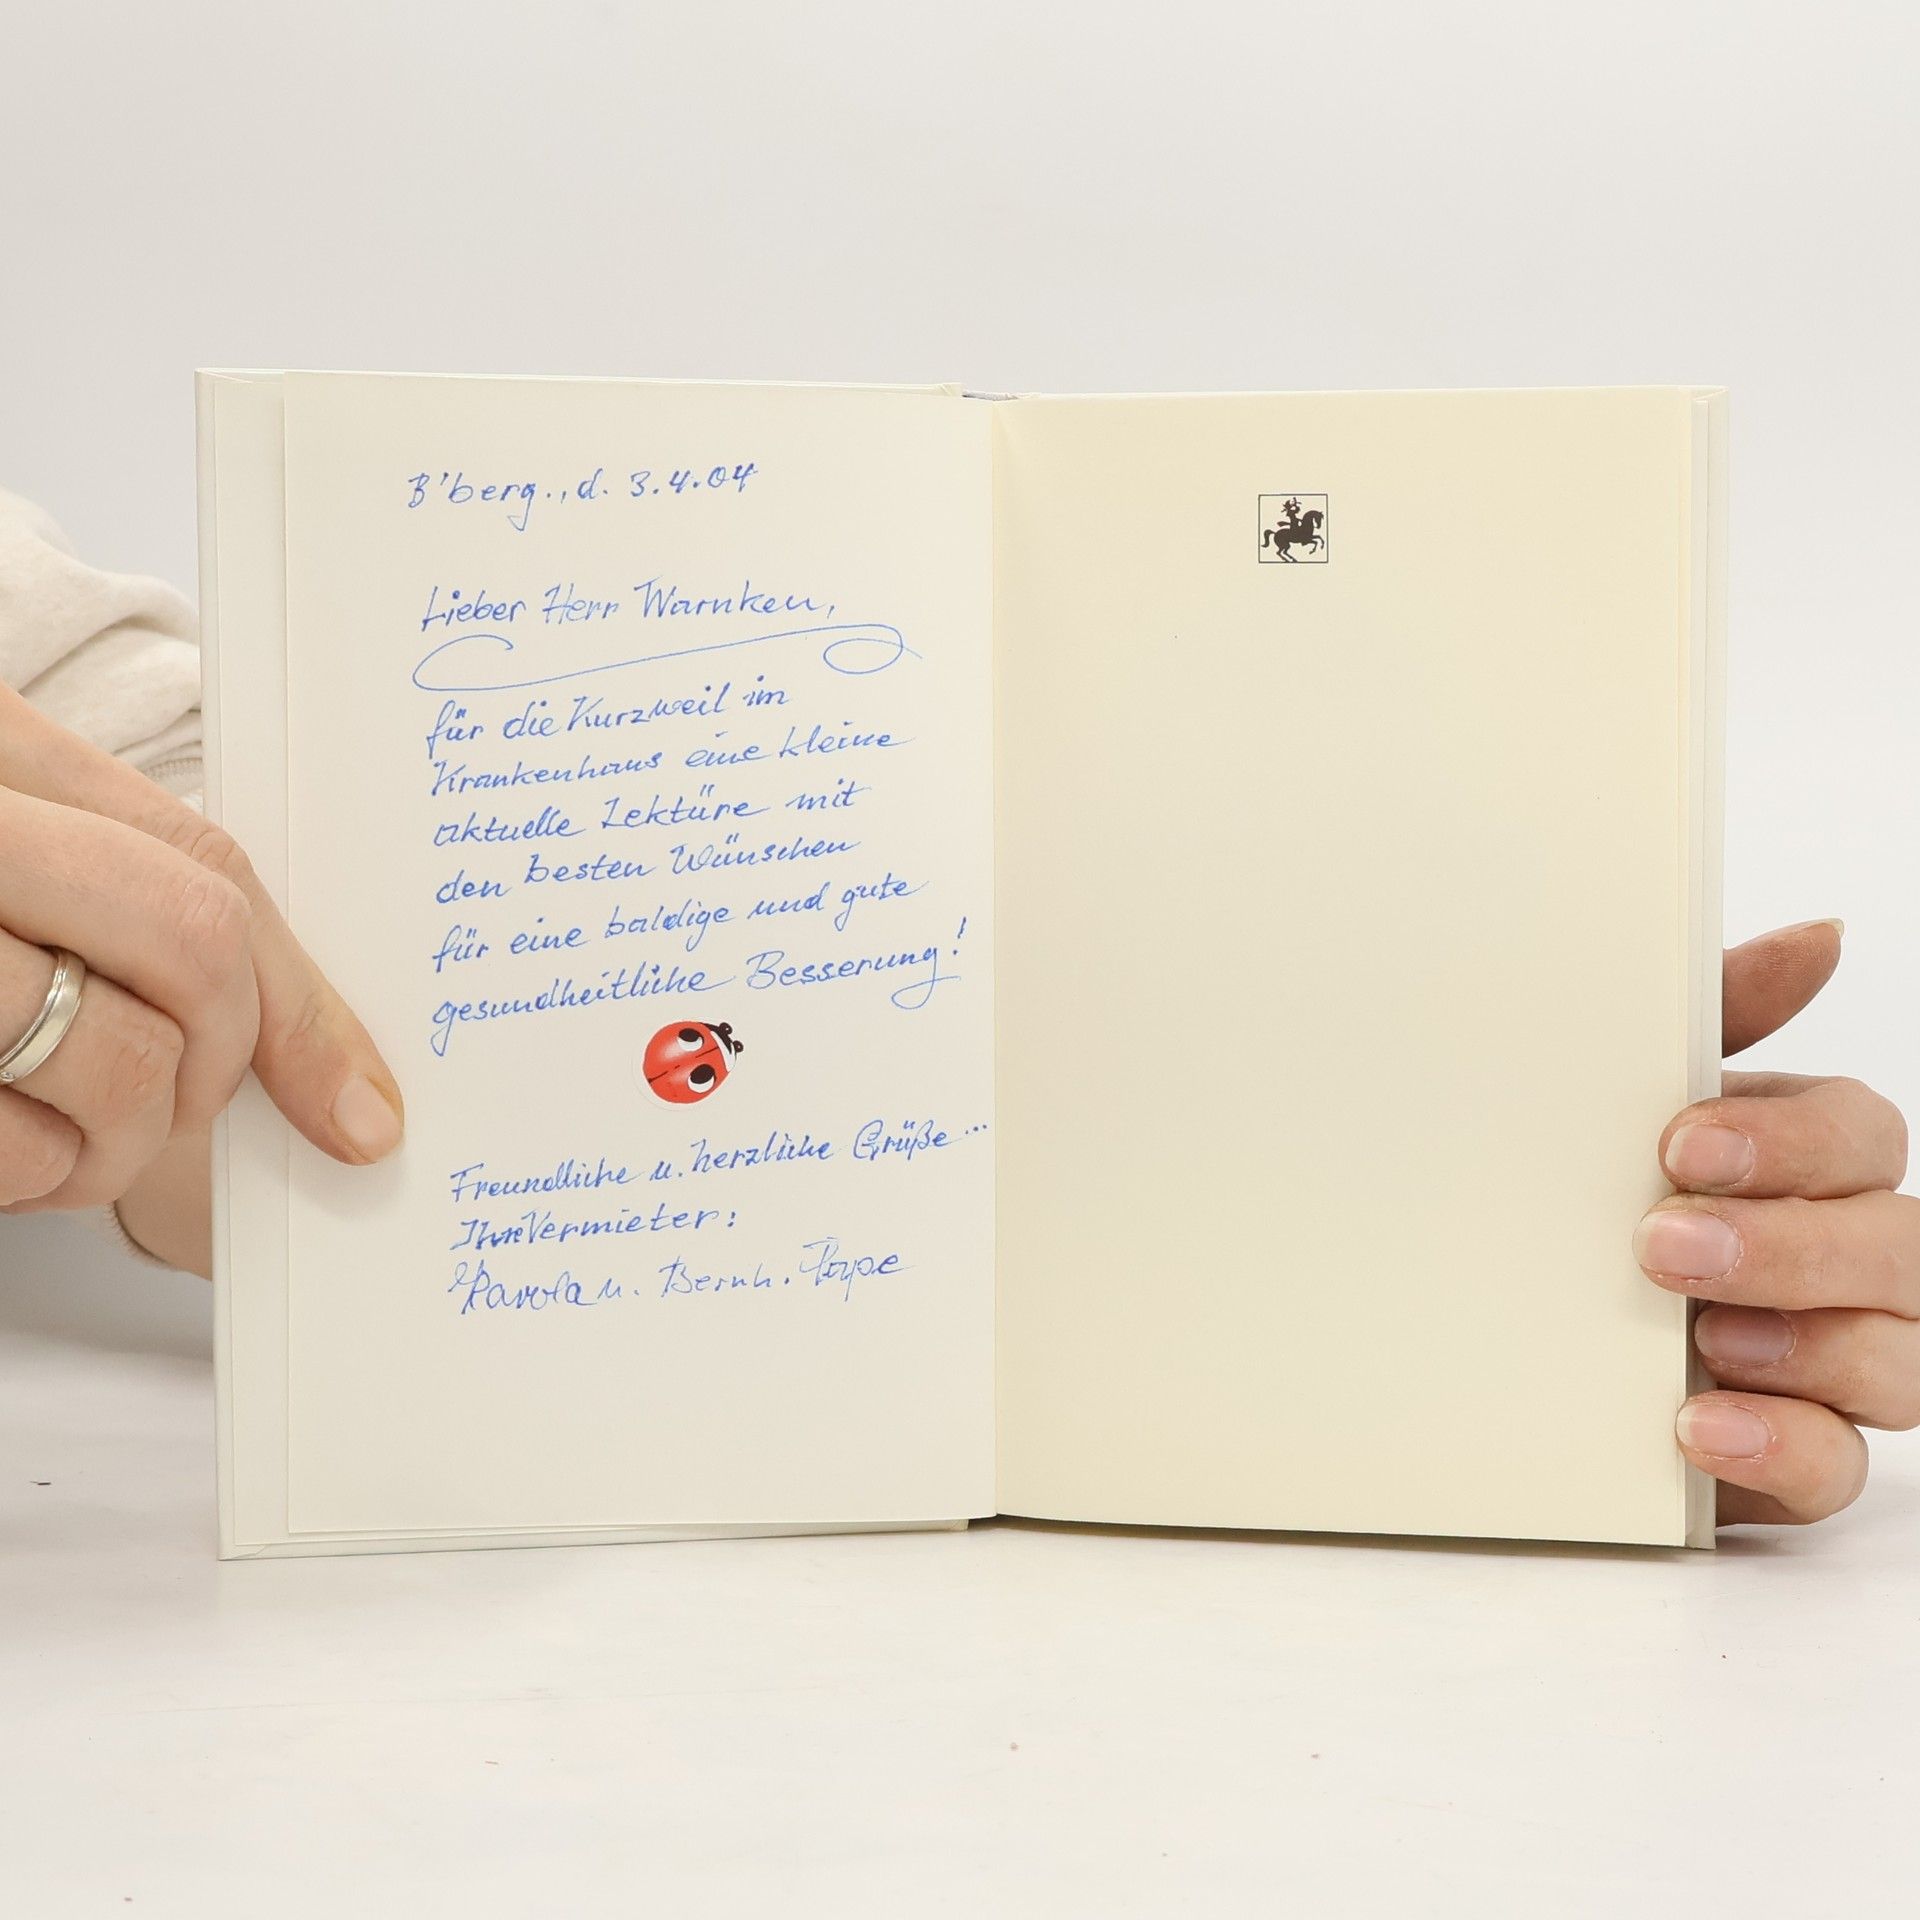 B'berg., d. 3.4.04
Lieber Herr Warnken,
für die Kurzweil im
Krankenhaus eine kleine
aktuelle Lektüre mit
den besten Wünschen
für eine baldige und gute
gesundheitliche Besserung!
Freundliche u. herzliche Grüße...
Ihre Vermieter:
u. Bernh.